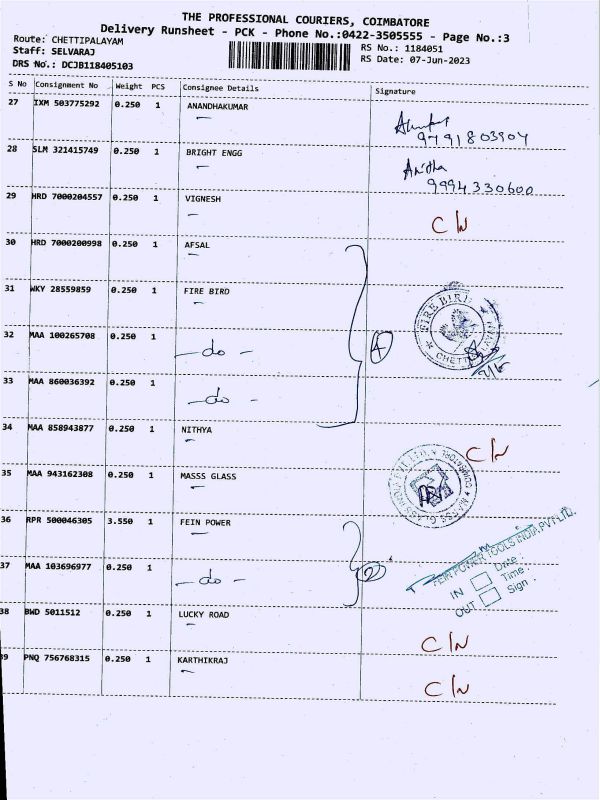 THE PROFESSIONAL COURIERS, COIMBATORE
Delivery Runsheet - PCK - Phone No.:0422-3505555 - Page No.:3
Route: CHETTIPALAYAM
RS No.: 1184051
Staff: SELVARAJ
RS Date: 07-Jun-2023
DRS No.: DCJB118405103
S No Consignment No Weight PCS Consignee Details Signature
27 IXM 503775292 0.250 1 ANANDHAKUMAR
9791803904
28 SLM 321415749 0.250 1 BRIGHT ENGG
Anitha
9994330600
29 HRD 7000204557 0.250 1 VIGNESH
C/N
30 HRD 7000200998 0.250 1 AFSAL
31 WKY 28559859 0.250 1 FIRE BIRD
FIRE BIRD
32 MAA 100265708 0.250 1 - do -
4
33 MAA 860036392 0.250 1 - do -
34 MAA 858943877 0.250 1 NITHYA
C/N
35 MAA 943162308 0.250 1 MASSS GLASS
36 RPR 500046305 3.550 1 FEIN POWER
FEIN POWER TOOLS INDIA PVT LTD.
37 MAA 103696977 0.250 1 - do -
2
IN Date :
Time :
OUT Sign :
38 BWD 5011512 0.250 1 LUCKY ROAD
C/N
39 PNQ 756768315 0.250 1 KARTHIKRAJ
C/N